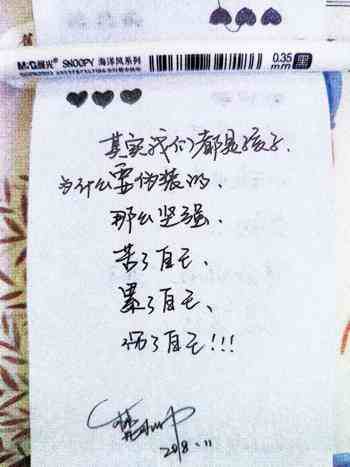 M&G晨光 SNOOPY 海洋风系列
0.35
mm 黑
其实我们都是孩子、
为什么要伪装的、
那么坚强、
苦了自己、
累了自己、
伤了自己!!!
2018.11